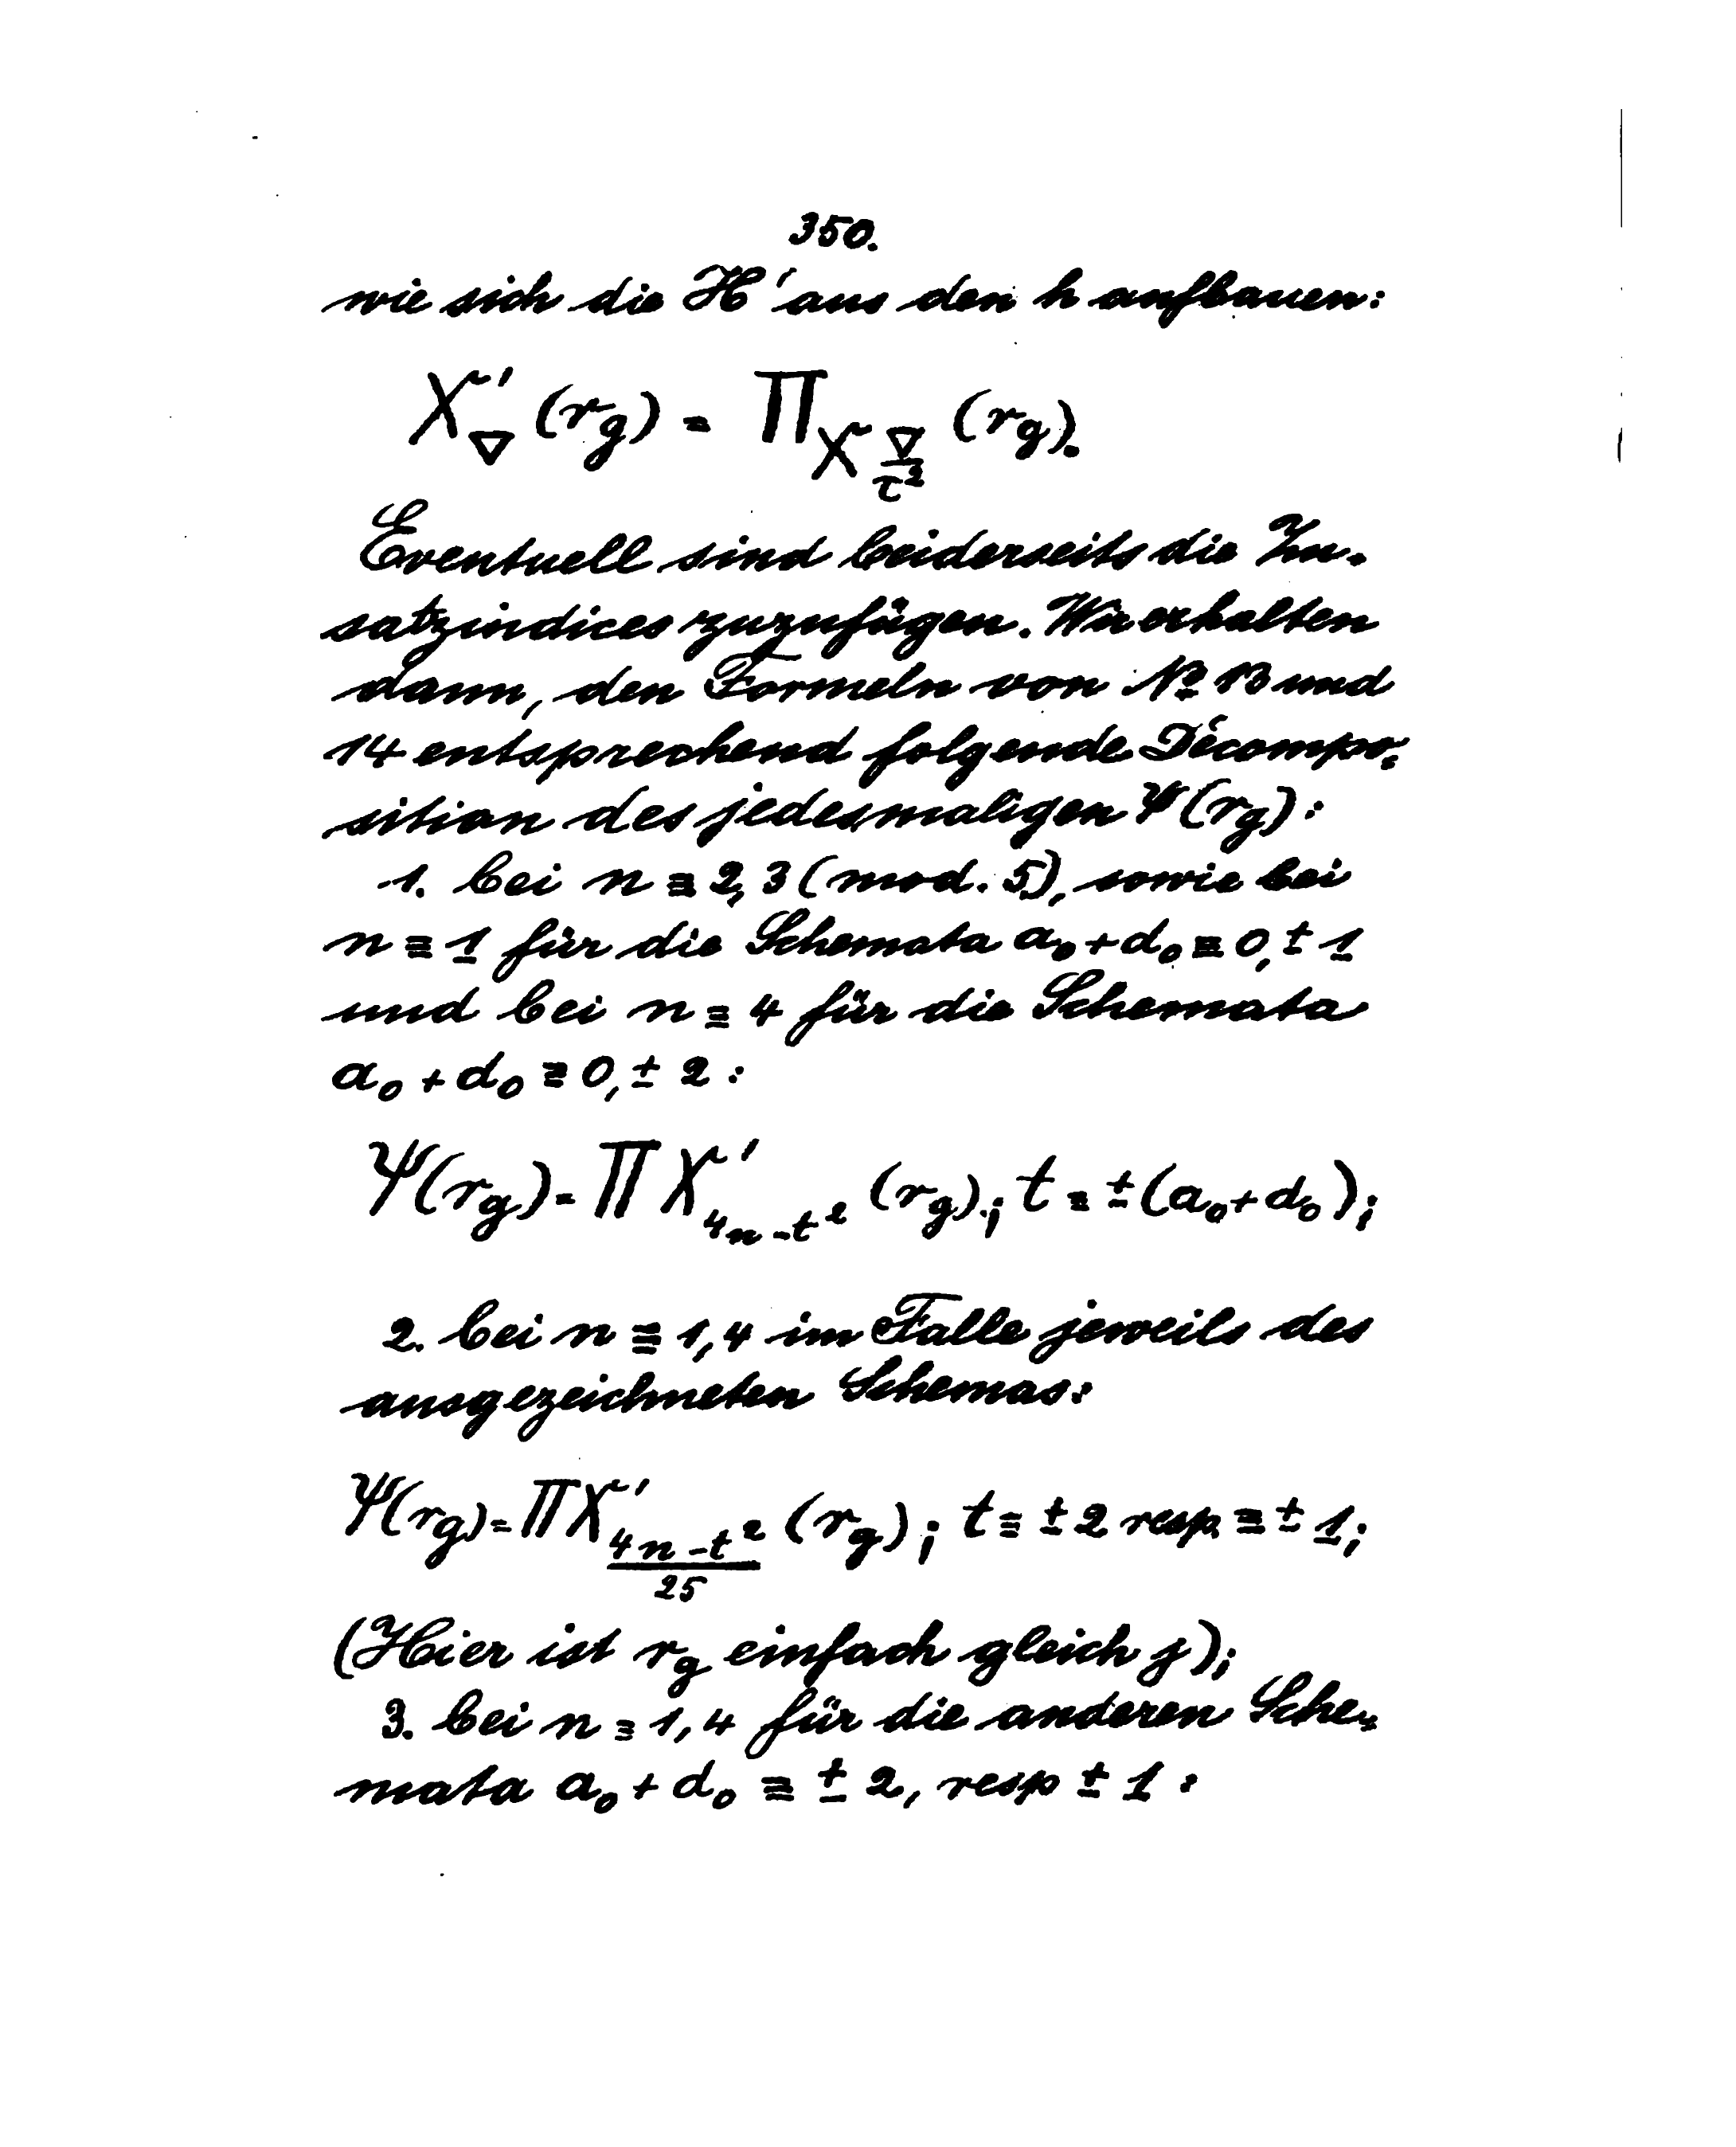 350.
wie sich die H' aus den h aufbauen:
X'_∇ (r_g) = Π X_{∇/τ²} (r_g).
Eventuell sind beiderseits die Zu-
satzindices zuzufügen. Wir erhalten
dann, den Formeln von No 13 und
14 entsprechend folgende Décompo-
sition des jedesmaligen Ψ(r_g):
1. bei n ≡ 2, 3 (mod. 5), sowie bei
n ≡ 1 für die Schemata a_0 + d_0 ≡ 0, ± 1
und bei n ≡ 4 für die Schemata
a_0 + d_0 ≡ 0, ± 2:
Ψ(r_g) = Π X'_{4n-t²} (r_g); t ≡ ±(a_0 + d_0);
2. bei n ≡ 1, 4 im Falle jeweils des
ausgezeichneten Schemas:
Ψ(r_g) = Π X'_{(4n-t²)/25} (r_g); t ≡ ± 2 resp. ≡ ± 1;
(Hier ist r_g einfach gleich j);
3. bei n ≡ 1, 4 für die anderen Sche-
mata a_0 + d_0 ≡ ± 2, resp ± 1: